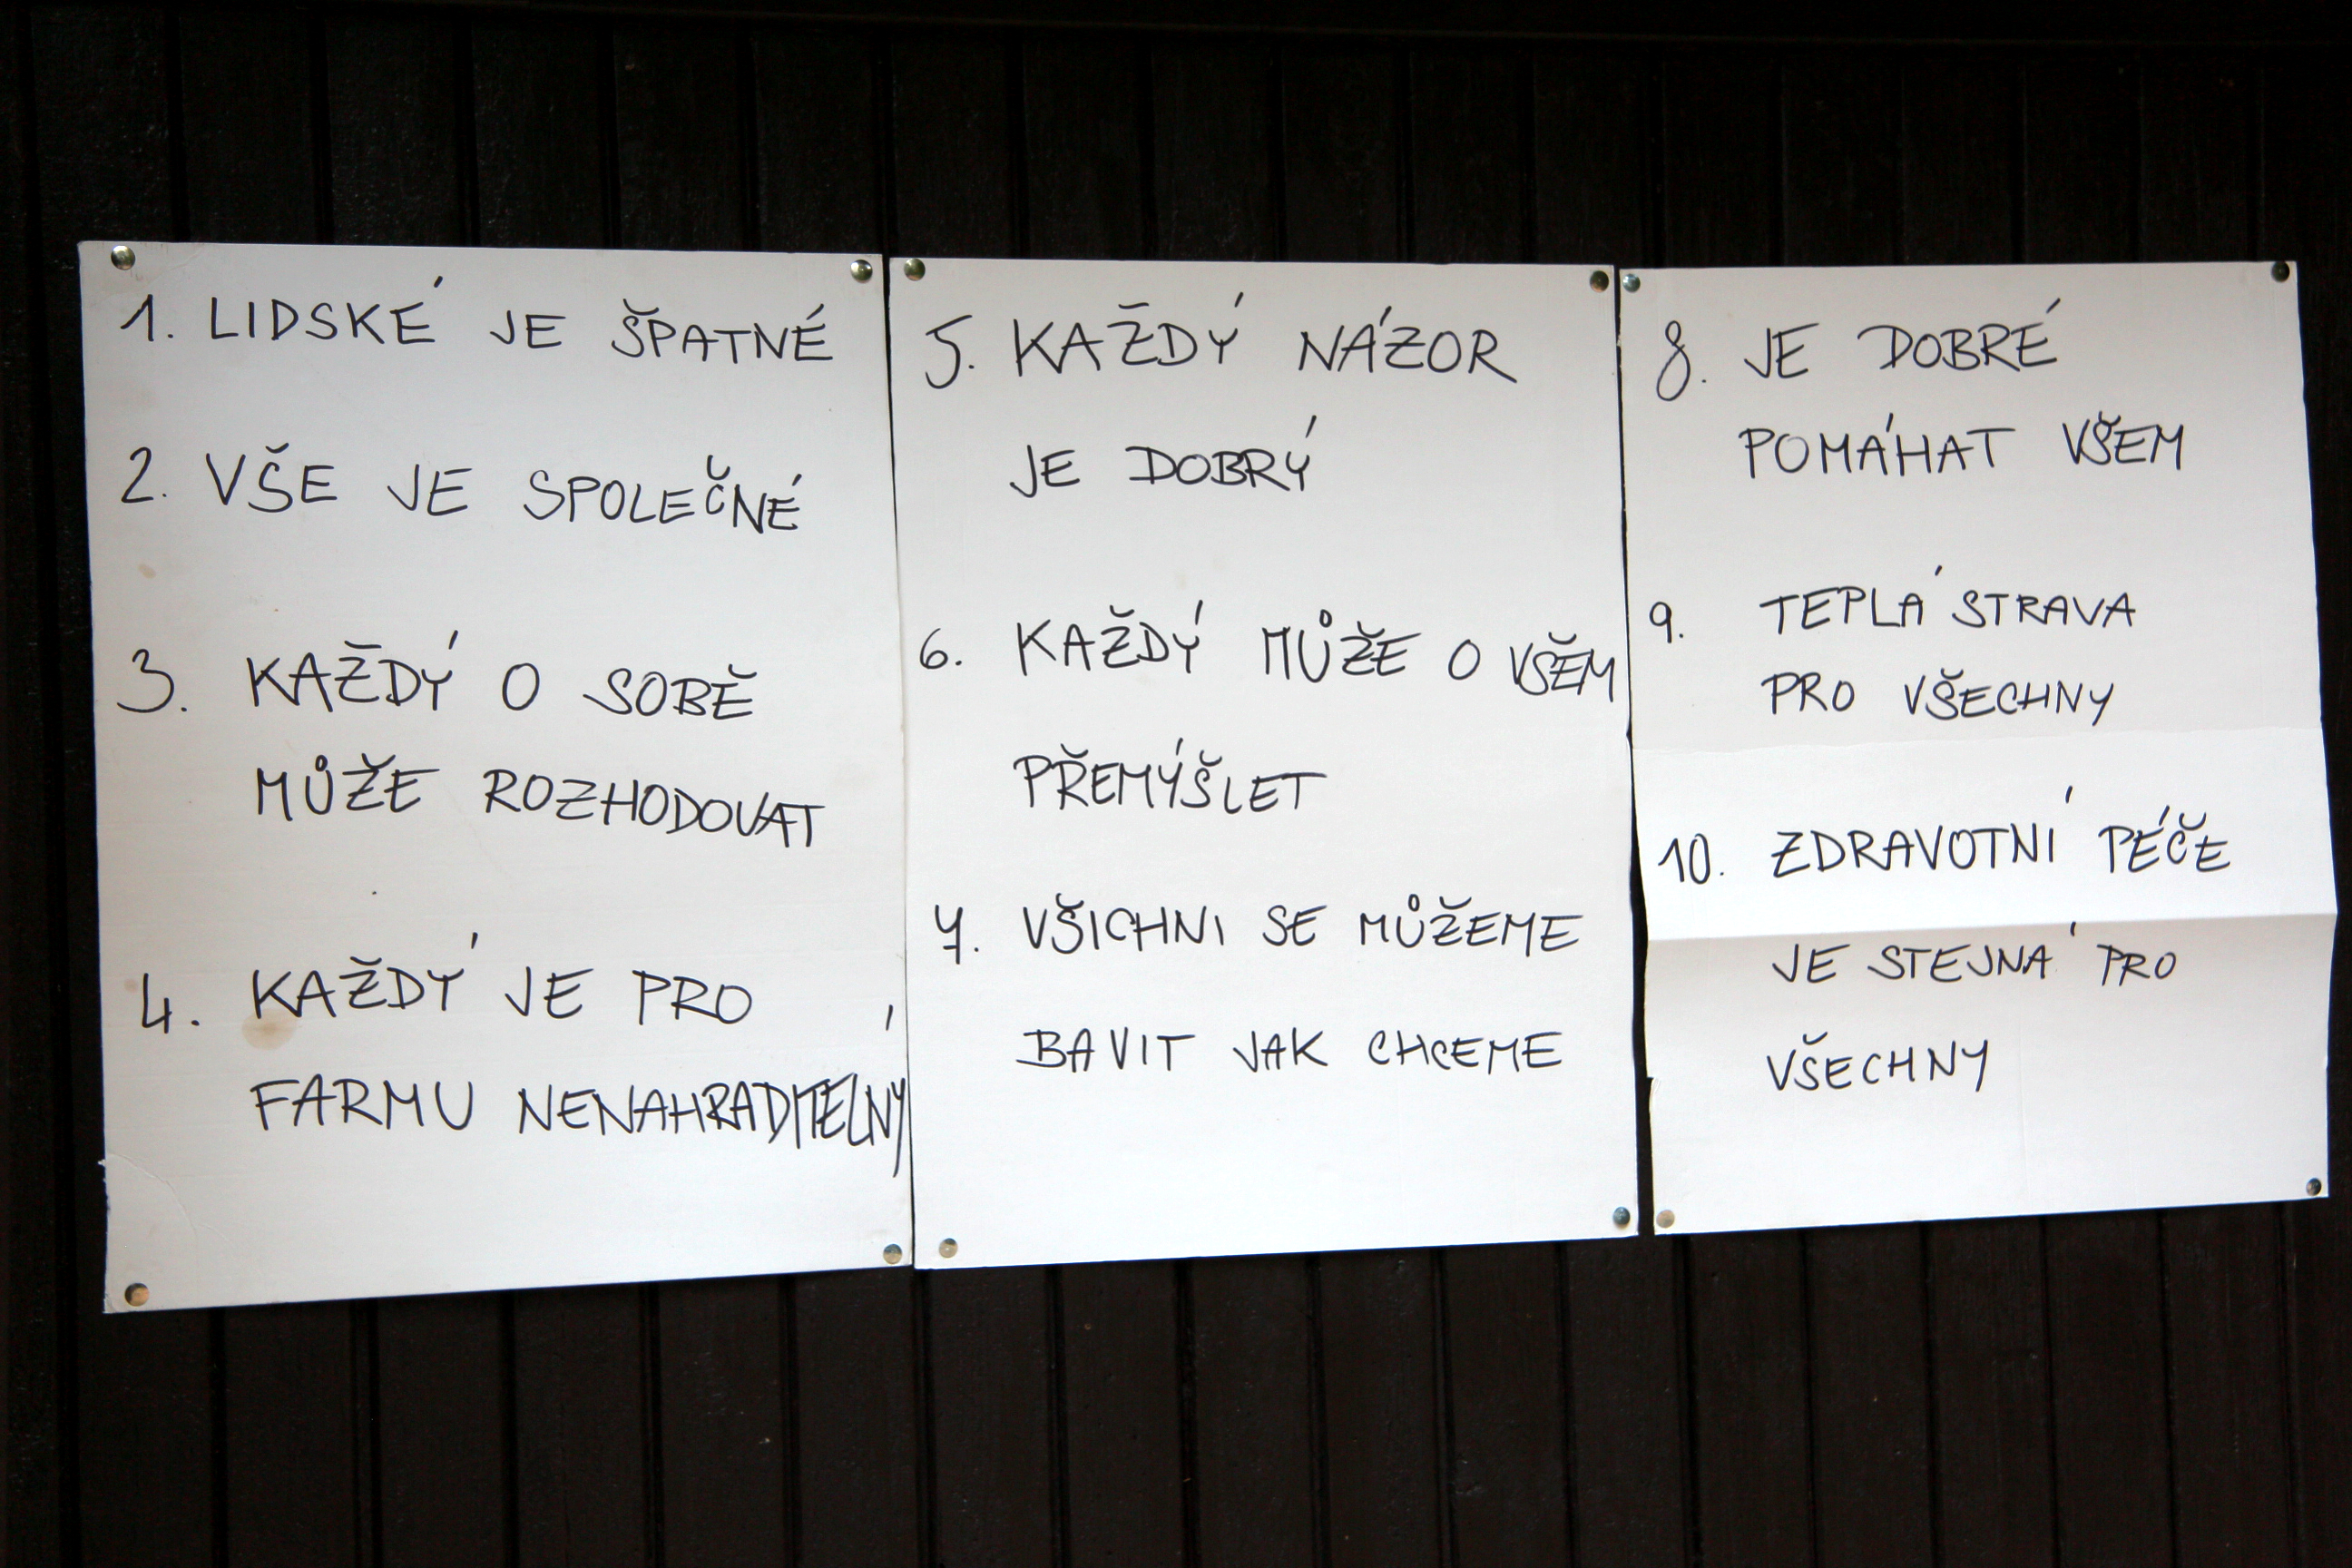 1. LIDSKÉ JE ŠPATNÉ
2. VŠE JE SPOLEČNÉ
3. KAŽDÝ O SOBĚ
MŮŽE ROZHODOVAT
4. KAŽDÝ JE PRO
FARMU NENAHRADITELNÝ
5. KAŽDÝ NÁZOR
JE DOBRÝ
6. KAŽDÝ MŮŽE O VŠEM
PŘEMÝŠLET
7. VŠICHNI SE MŮŽEME
BAVIT JAK CHCEME
8. JE DOBRÉ
POMÁHAT VŠEM
9. TEPLÁ STRAVA
PRO VŠECHNY
10. ZDRAVOTNÍ PÉČE
JE STEJNÁ PRO
VŠECHNY